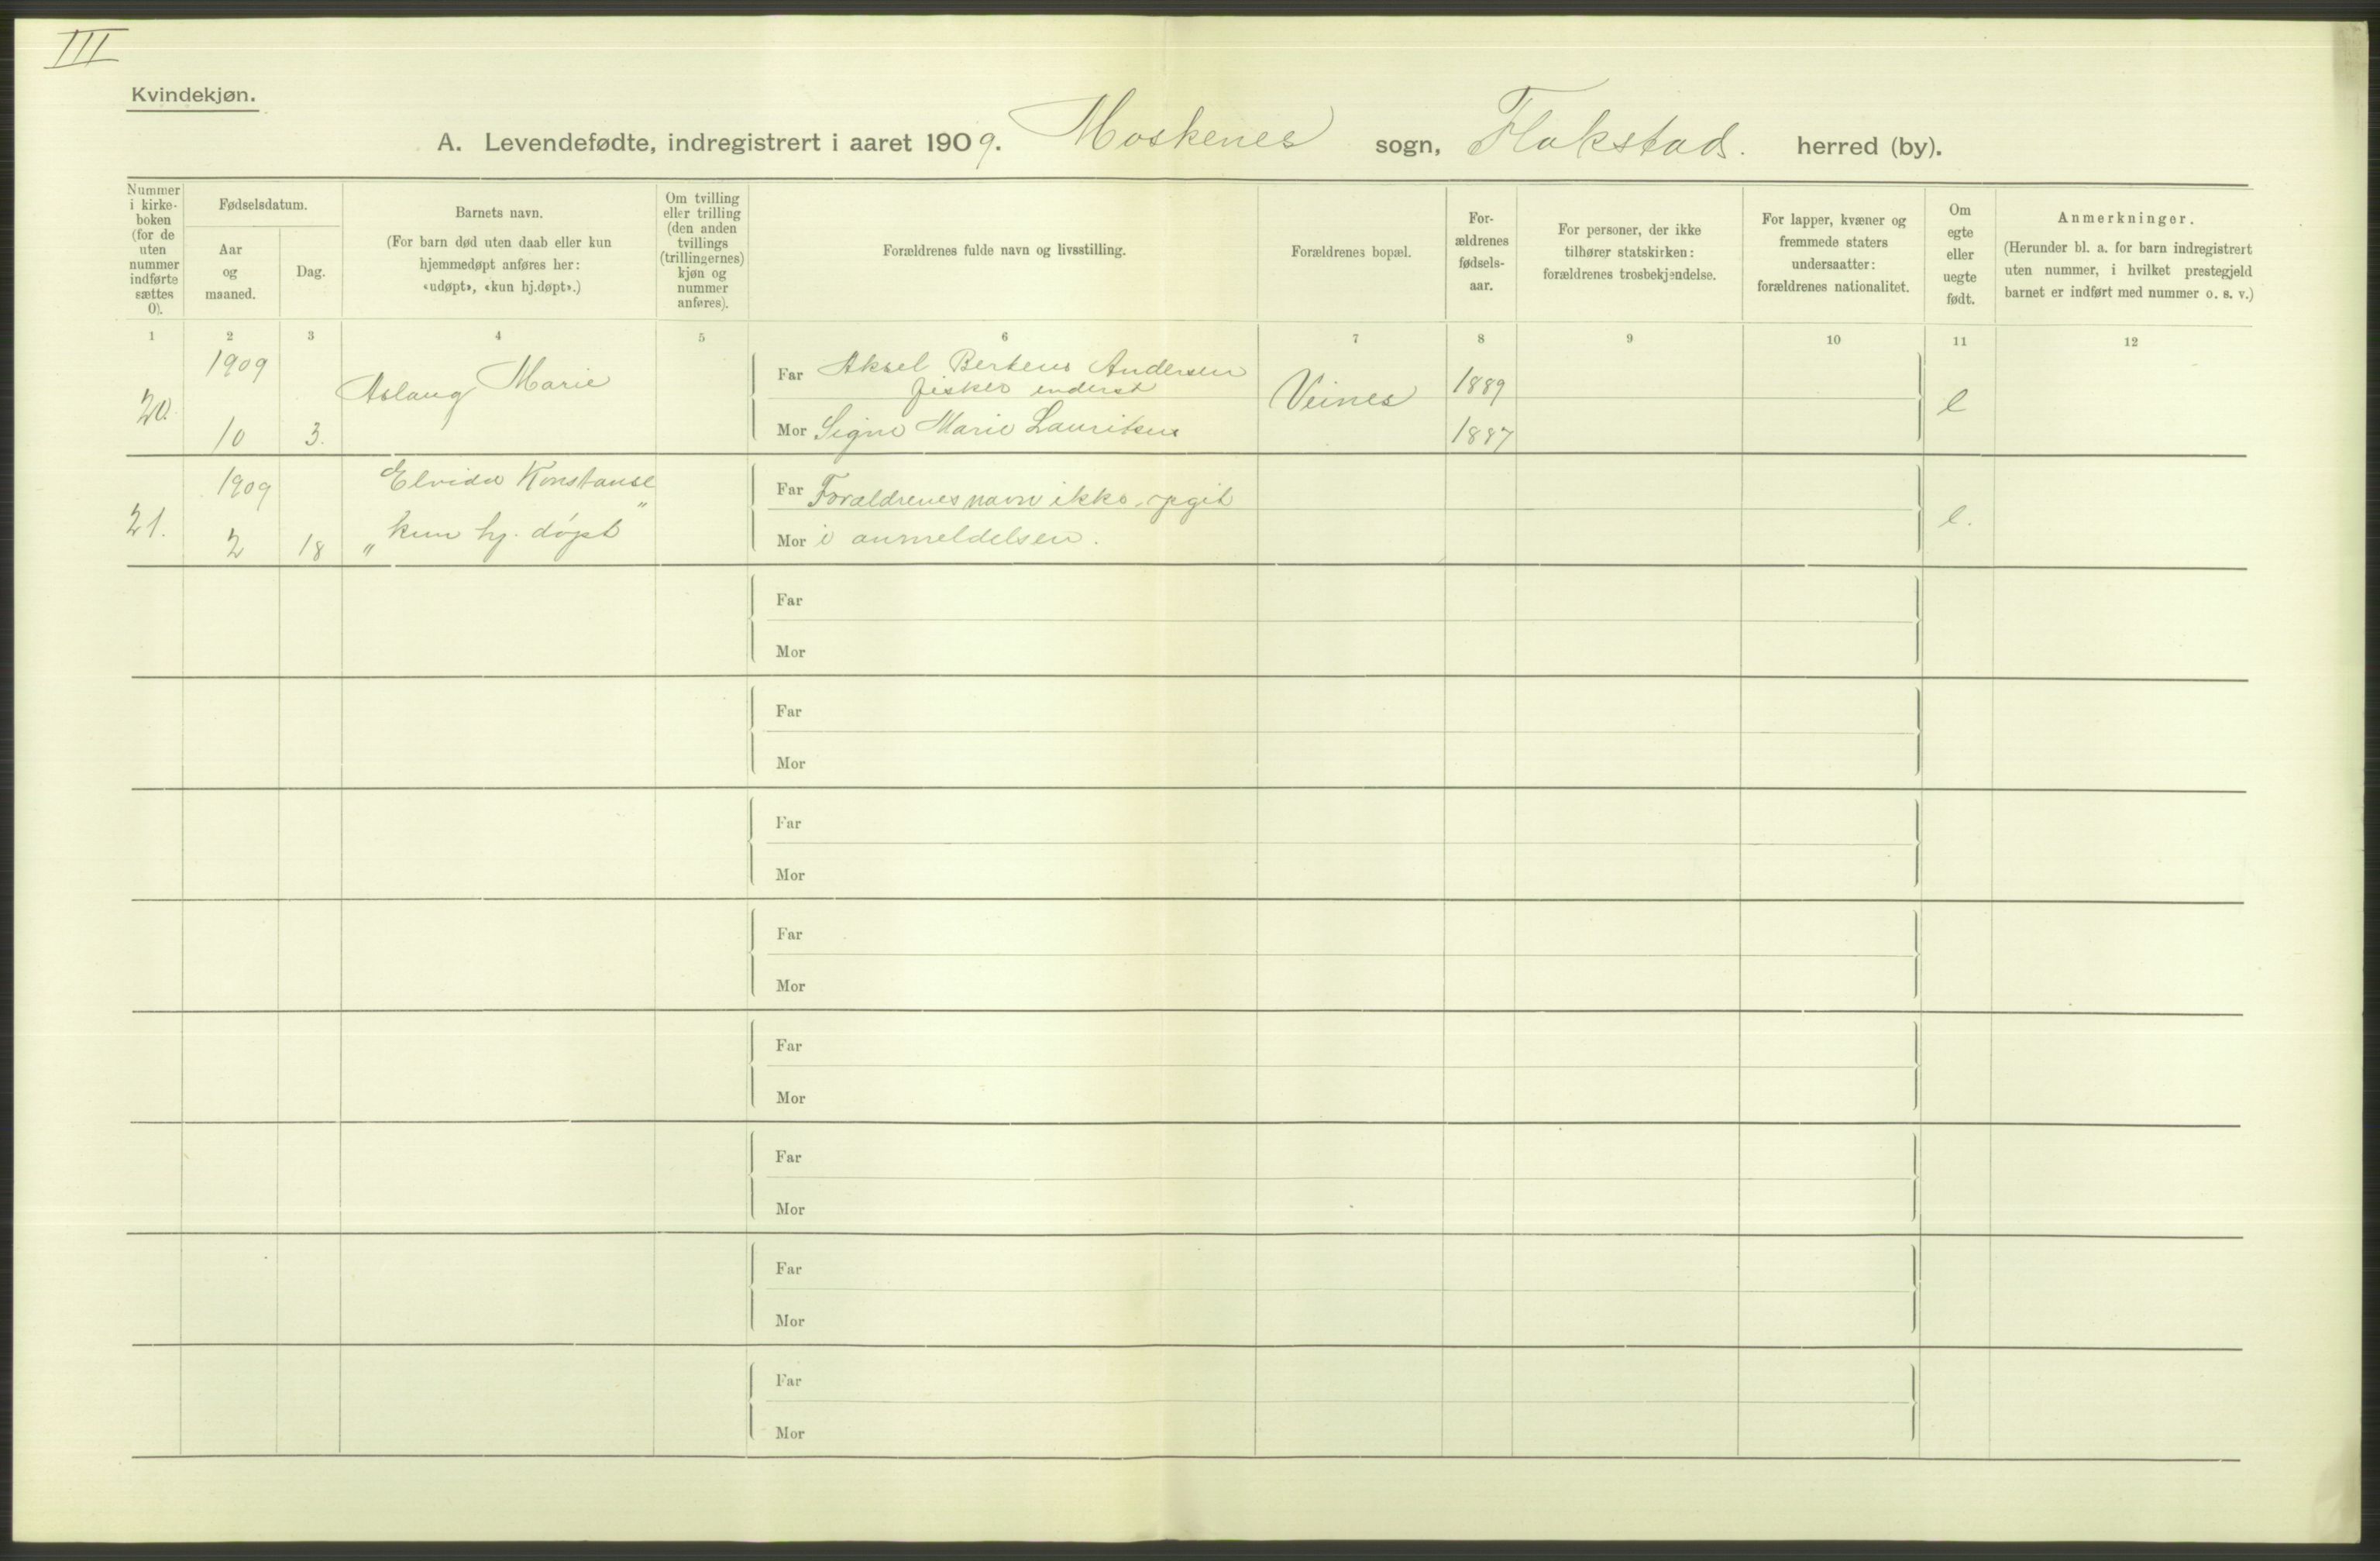 III
Kvindekjøn.
A. Levendefødte, indregistrert i aaret 1909. Moskenes sogn, Flakstad. herred (by).
Nummer i kirke- boken (for de uten nummer indførte sættes 0).
Fødselsdatum.
Aar og maaned.
Dag.
Barnets navn.
(For barn død uten daab eller kun hjemmedøpt anføres her: «udøpt», «kun hj.døpt».)
Om tvilling eller trilling (den anden tvillings (trillingernes) kjøn og nummer anføres).
Forældrenes fulde navn og livsstilling.
Forældrenes bopæl.
For- ældrenes fødsels- aar.
For personer, der ikke tilhører statskirken: forældrenes trosbekjendelse.
For lapper, kvæner og fremmede staters undersaatter: forældrenes nationalitet.
Om egte eller uegte født.
Anmerkninger.
(Herunder bl. a. for barn indregistrert uten nummer, i hvilket prestegjeld barnet er indført med nummer o. s. v.)
1 2 3 4 5 6 7 8 9 10 11 12
20. 1909 10 3. Aslaug Marie
Far Aksel Berteus Andersen
fisker inderst
Mor Signe Marie Lauritsen
Veines 1889 1887 e
21. 1909 2 18 Elvida Konstanse
„kun hj. døpt"
Far Forældrenes navn ikke opgit
Mor i anmeldelsen.
e.
Far
Mor
Far
Mor
Far
Mor
Far
Mor
Far
Mor
Far
Mor
Far
Mor
Far
Mor